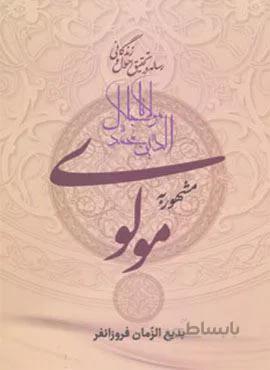 رساله در تحقیق احوال و زندگانی
مولانا جلال
الدین محمد
مشهور به
مولوی
بدیع الزمان فروزانفر
باباسلط